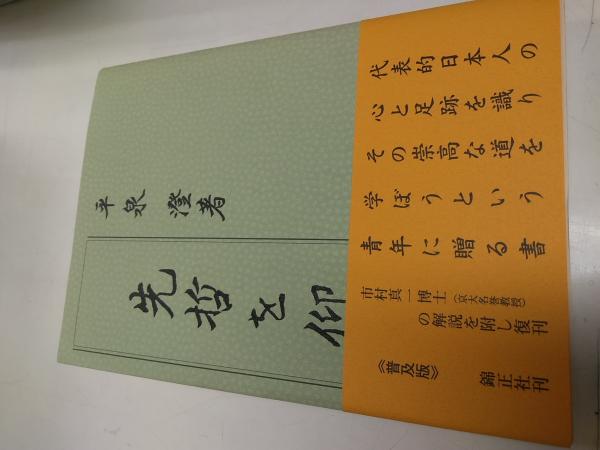 平泉 澄著
先哲を仰
代表的日本人の
心と足跡を識り
その崇高な道を
学ぼうという
青年に贈る書
市村真一博士(京大名誉教授)
の解説を附し復刊
《普及版》
錦正社刊